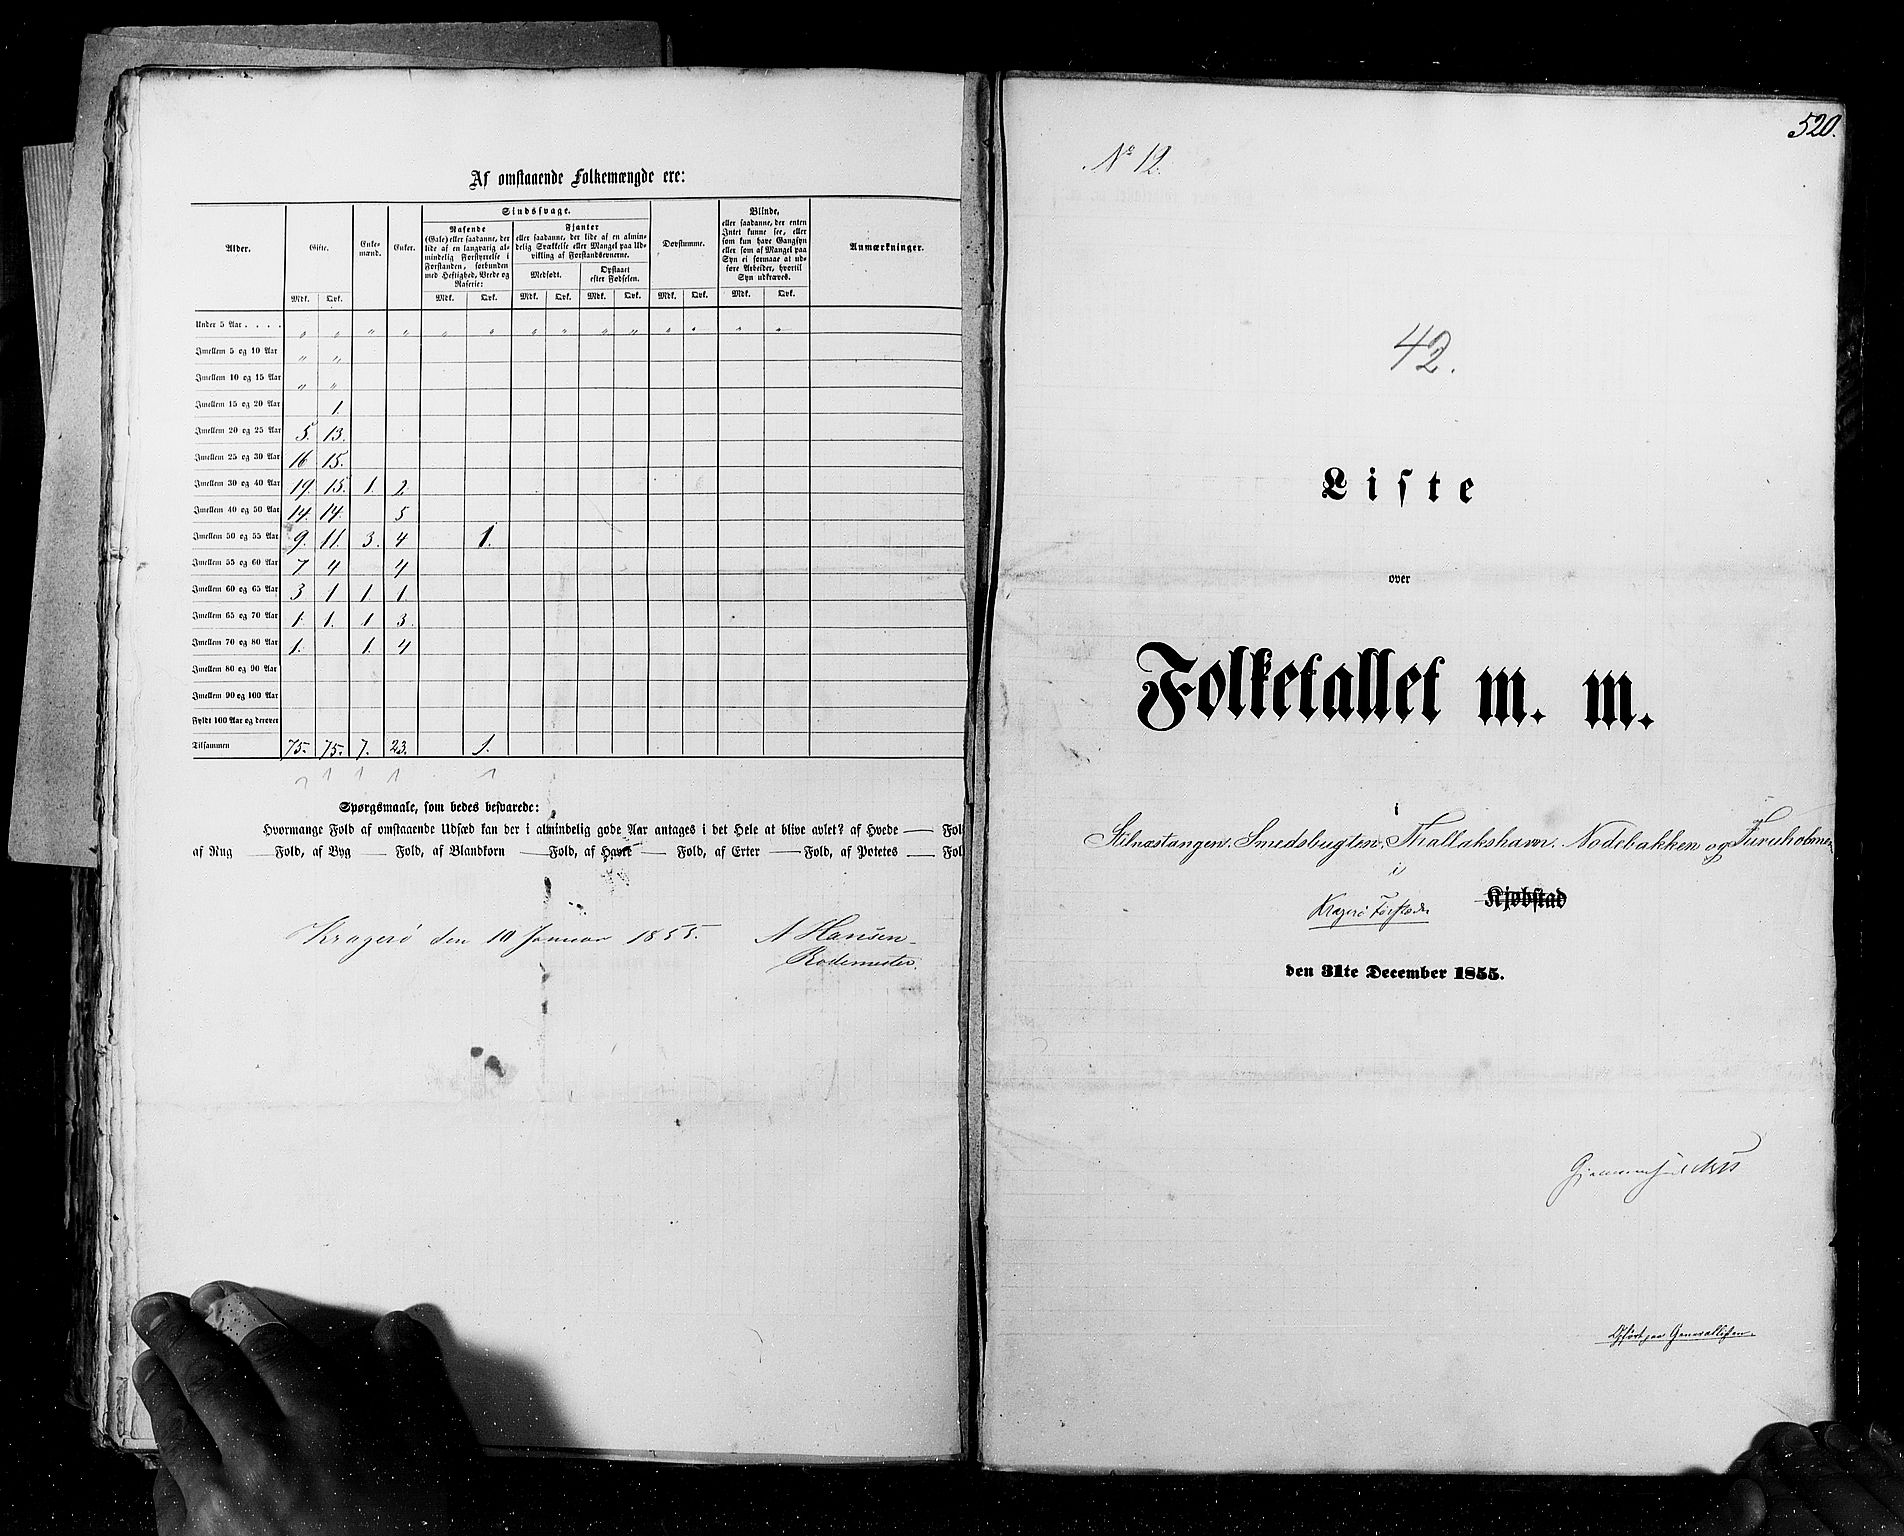 Af omstaaende Folkemængde ere:
Alder. Gifte. Enkemænd. Enker. Sindssvage. Døvstumme. Blinde, Anmærkninger.
Rasende
(Gale) eller saadanne, der
lide af en langvarig almindelig Forstyrrelse i
Forstanden, forbunden
med Heftighed, Vrede og
Raserie:
Fjanter
eller saadanne, der lide af en almindelig Svækkelse eller Mangel paa Udvikling af Forstandsevnerne.
Medfødt. Opstaaet
efter Fødselen.
eller saadanne, der enten
Intet kunne see, eller
som kun have Gangsyn
eller som af Mangel paa
Syn ei formaae at udføre Arbeider, hvortil
Syn udkræves.
Mdk. Qvk. Mdk. Qvk. Mdk. Qvk. Mdk. Qvk. Mdk. Qvk. Mdk. Qvk.
Under 5 Aar . . . . " " " " " " " " " " " " " "
Imellem 5 og 10 Aar " "
Imellem 10 og 15 Aar " "
Imellem 15 og 20 Aar 1.
Imellem 20 og 25 Aar 5. 13.
Imellem 25 og 30 Aar 16 15.
Imellem 30 og 40 Aar 19. 15. 1. 2.
Imellem 40 og 50 Aar 14. 14. 5
Imellem 50 og 55 Aar 9. 11. 3. 4 1.
Imellem 55 og 60 Aar 7 4 4
Imellem 60 og 65 Aar 3 1 1 1.
Imellem 65 og 70 Aar 1. 1. 1 3.
Imellem 70 og 80 Aar 1. 1. 4
Imellem 80 og 90 Aar
Imellem 90 og 100 Aar
Fyldt 100 Aar og derover
Tilsammen 75. 75. 7. 23. 1.
Spørgsmaale, som bedes besvarede:
Hvormange Fold af omstaaende Udsæd kan der i almindelig gode Aar antages i det Hele at blive avlet? af Hvede — Fol
af Rug — Fold, af Byg — Fold, af Blandkorn — Fold, af Havre — Fold, af Erter — Fold, af Potetes — Fol
Kragerö den 10 Januar 1855. A Hansen
Rodemester.
520.
No 12.
42.
Liste
over
Folketallet m. m.
i
Stilnæstangen, Smedsbugten, Thallakshavn, Nodebakken og Furuholmen
i
Kragerö Forstæder Kjøbstad
den 31te December 1855.
Opført paa Generallisten.